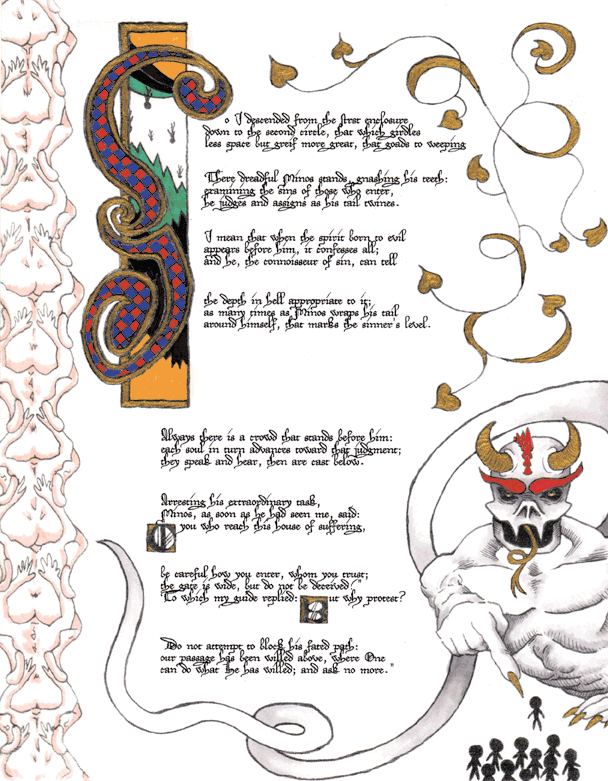 So I descended from the first enclosure
down to the second circle, that which girdles
less space but greif more great, that goads to weeping
There dreadful Minos stands, gnashing his teeth:
examining the sins of those who enter,
he judges and assigns as his tail twines.
I mean that when the spirit born to evil
appears before him, it confesses all;
and he, the connoisseur of sin, can tell
the depth in hell appropriate to it;
as many times as Minos wraps his tail
around himself, that marks the sinner's level.
Always there is a crowd that stands before him:
each soul in turn advances toward that judgment;
they speak and hear, then are cast below.
Arresting his extraordinary task,
Minos, as soon as he had seen me, said:
O you who reach this house of suffering,
be careful how you enter, whom you trust;
the gate is wide, but do not be deceived"
To which my guide replied: But why protest?
Do not attempt to block his fated path:
our passage has been willed above, where One
can do what He has willed; and ask no more."